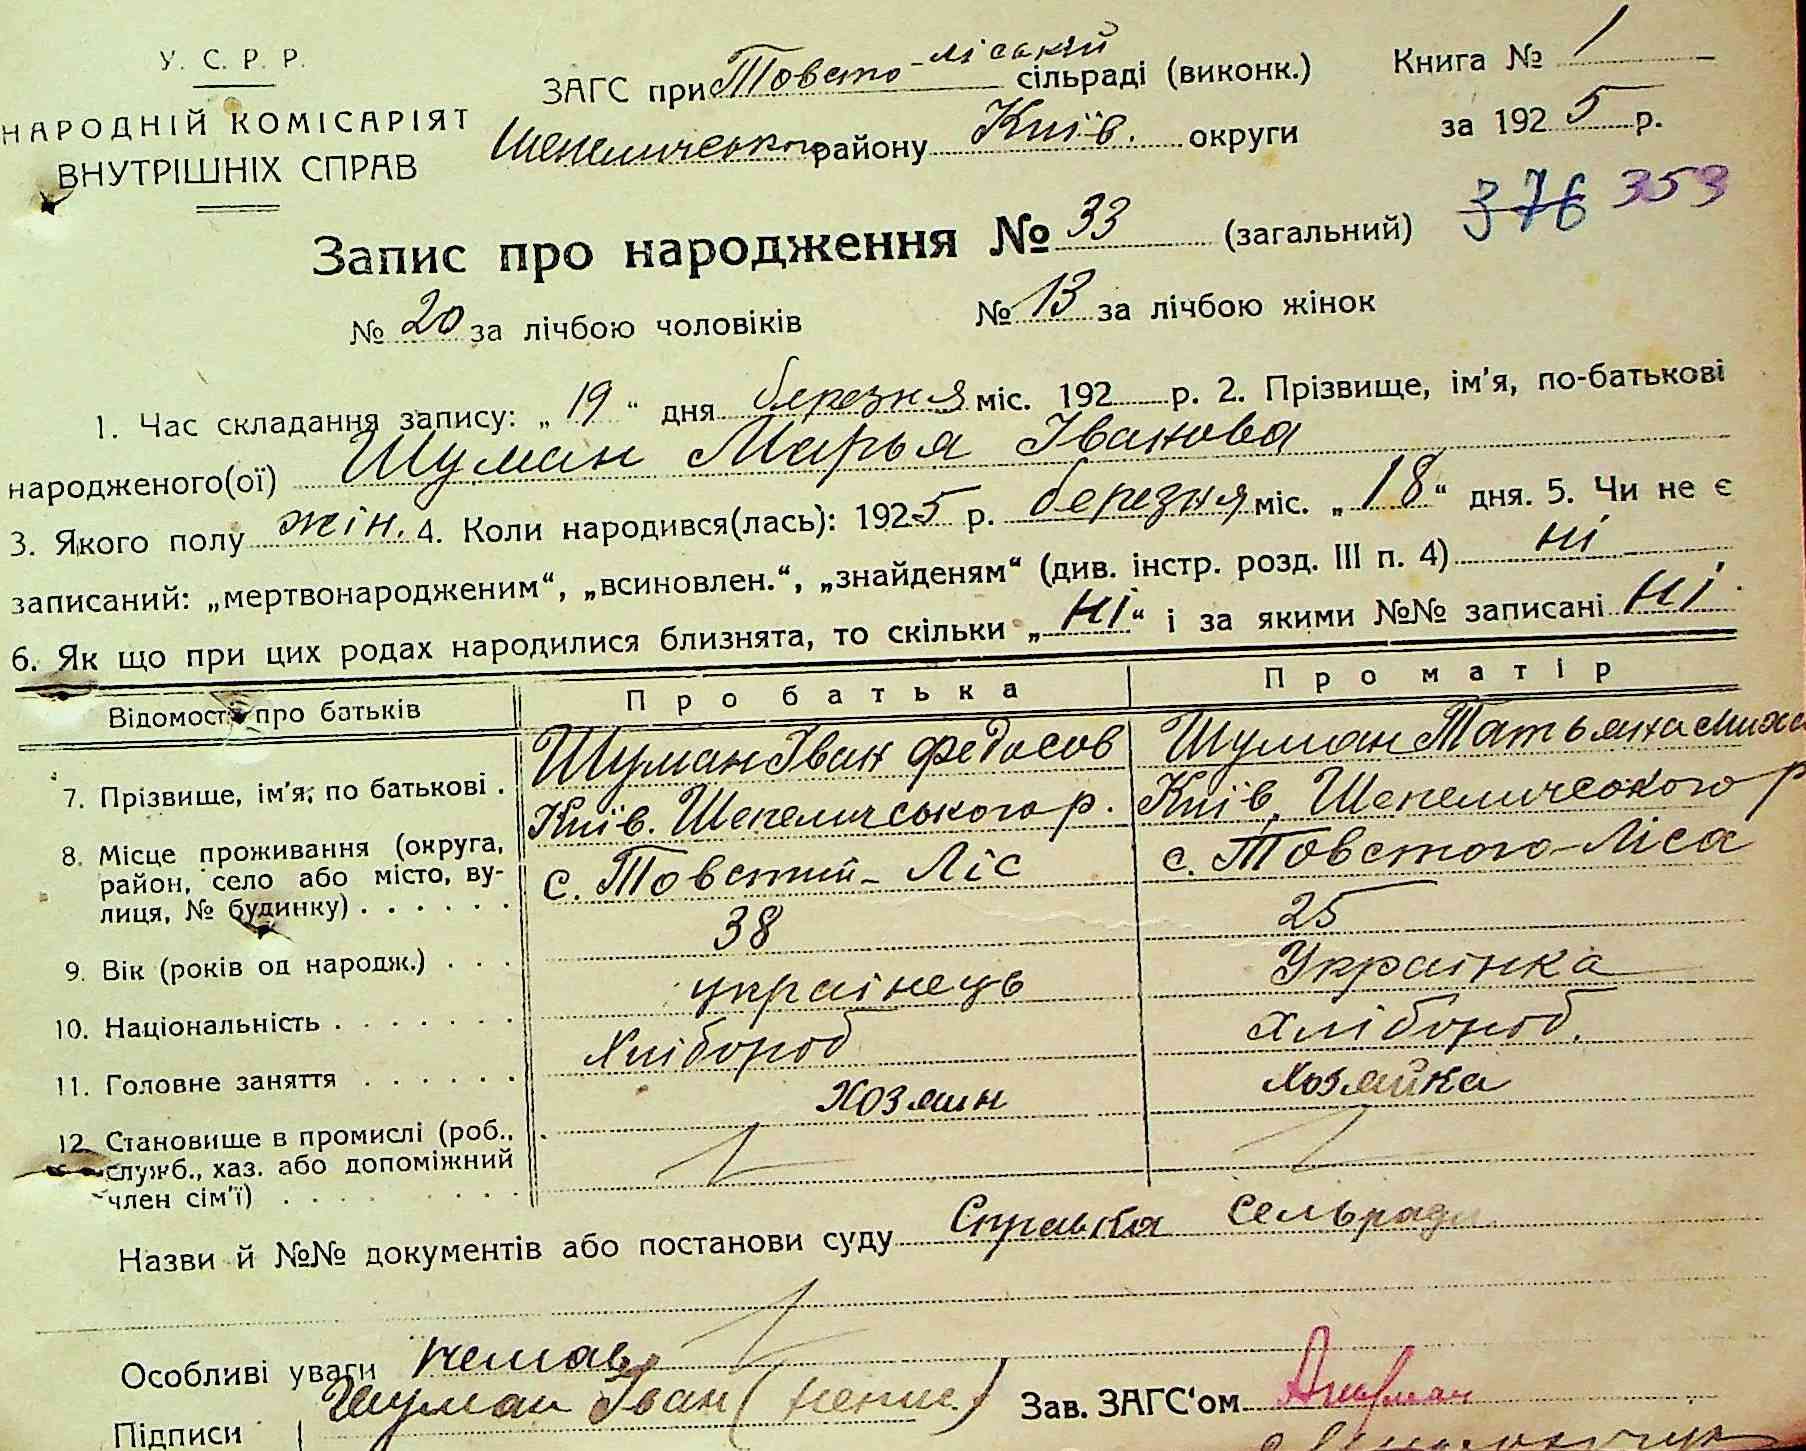 У. С. Р. Р.
НАРОДНІЙ КОМІСАРІЯТ
ВНУТРІШНІХ СПРАВ
ЗАГС при Товсто-ліській сільраді (виконк.)
Шепеличського району Київ. округи
Книга № 1
за 1925 р.
376 353
Запис про народження № 33 (загальний)
№ 20 за лічбою чоловіків № 13 за лічбою жінок
1. Час складання запису: „19“ дня березня міс. 192 р. 2. Прізвище, ім'я, по-батькові
народженого(ої) Шуман Марья Іванова
3. Якого полу жін. 4. Коли народився(лась): 1925 р. березня міс. „18“ дня. 5. Чи не є
записаний: „мертвонародженим“, „всиновлен.“, „знайденям“ (див. інстр. розд. III п. 4) ні
6. Як що при цих родах народилися близнята, то скільки „ні“ і за якими №№ записані ні
Відомості про батьків Про батька Про матір
7. Прізвище, ім'я, по батькові . Шуман Іван Федосов Шуман Татьяна Миха
8. Місце проживання (округа, Київ. Шепеличського р. Київ, Шепеличського р
район, село або місто, ву- с. Товстий-Ліс с. Товстого-Ліса
лиця, № будинку) . . . . . .
9. Вік (років од народж.) . . . 38 25
10. Національність . . . . . . . українець Українка
11. Головне заняття . . . . . . Хлібороб хлібороб.
12. Становище в промислі (роб., хозяин хозяйка
служб., хаз. або допоміжний
член сім'ї) . . . . . . . . .
Назви й №№ документів або постанови суду Справка Сельради
Особливі уваги немає
Підписи Шуман Іван (непис.) Зав. ЗАГС'ом